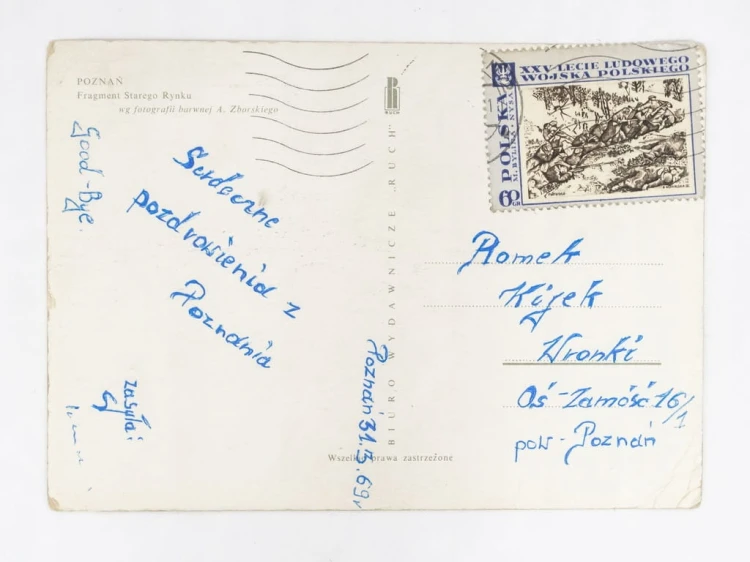 POZNAŃ
Fragment Starego Rynku
wg fotografii barwnej A. Zborskiego
Good-Bye.
Serdeczne
pozdrowienia z
Poznania
zasyła:
Poznań 31.3.69r
BIURO WYDAWNICZE „RUCH”
RUCH
Wszelkie prawa zastrzeżone
XXV-LECIE LUDOWEGO
WOJSKA POLSKIEGO
POLSKA
60
Romek
Kijek
Wronki
Oś-Zamość 16/1
pow-Poznań